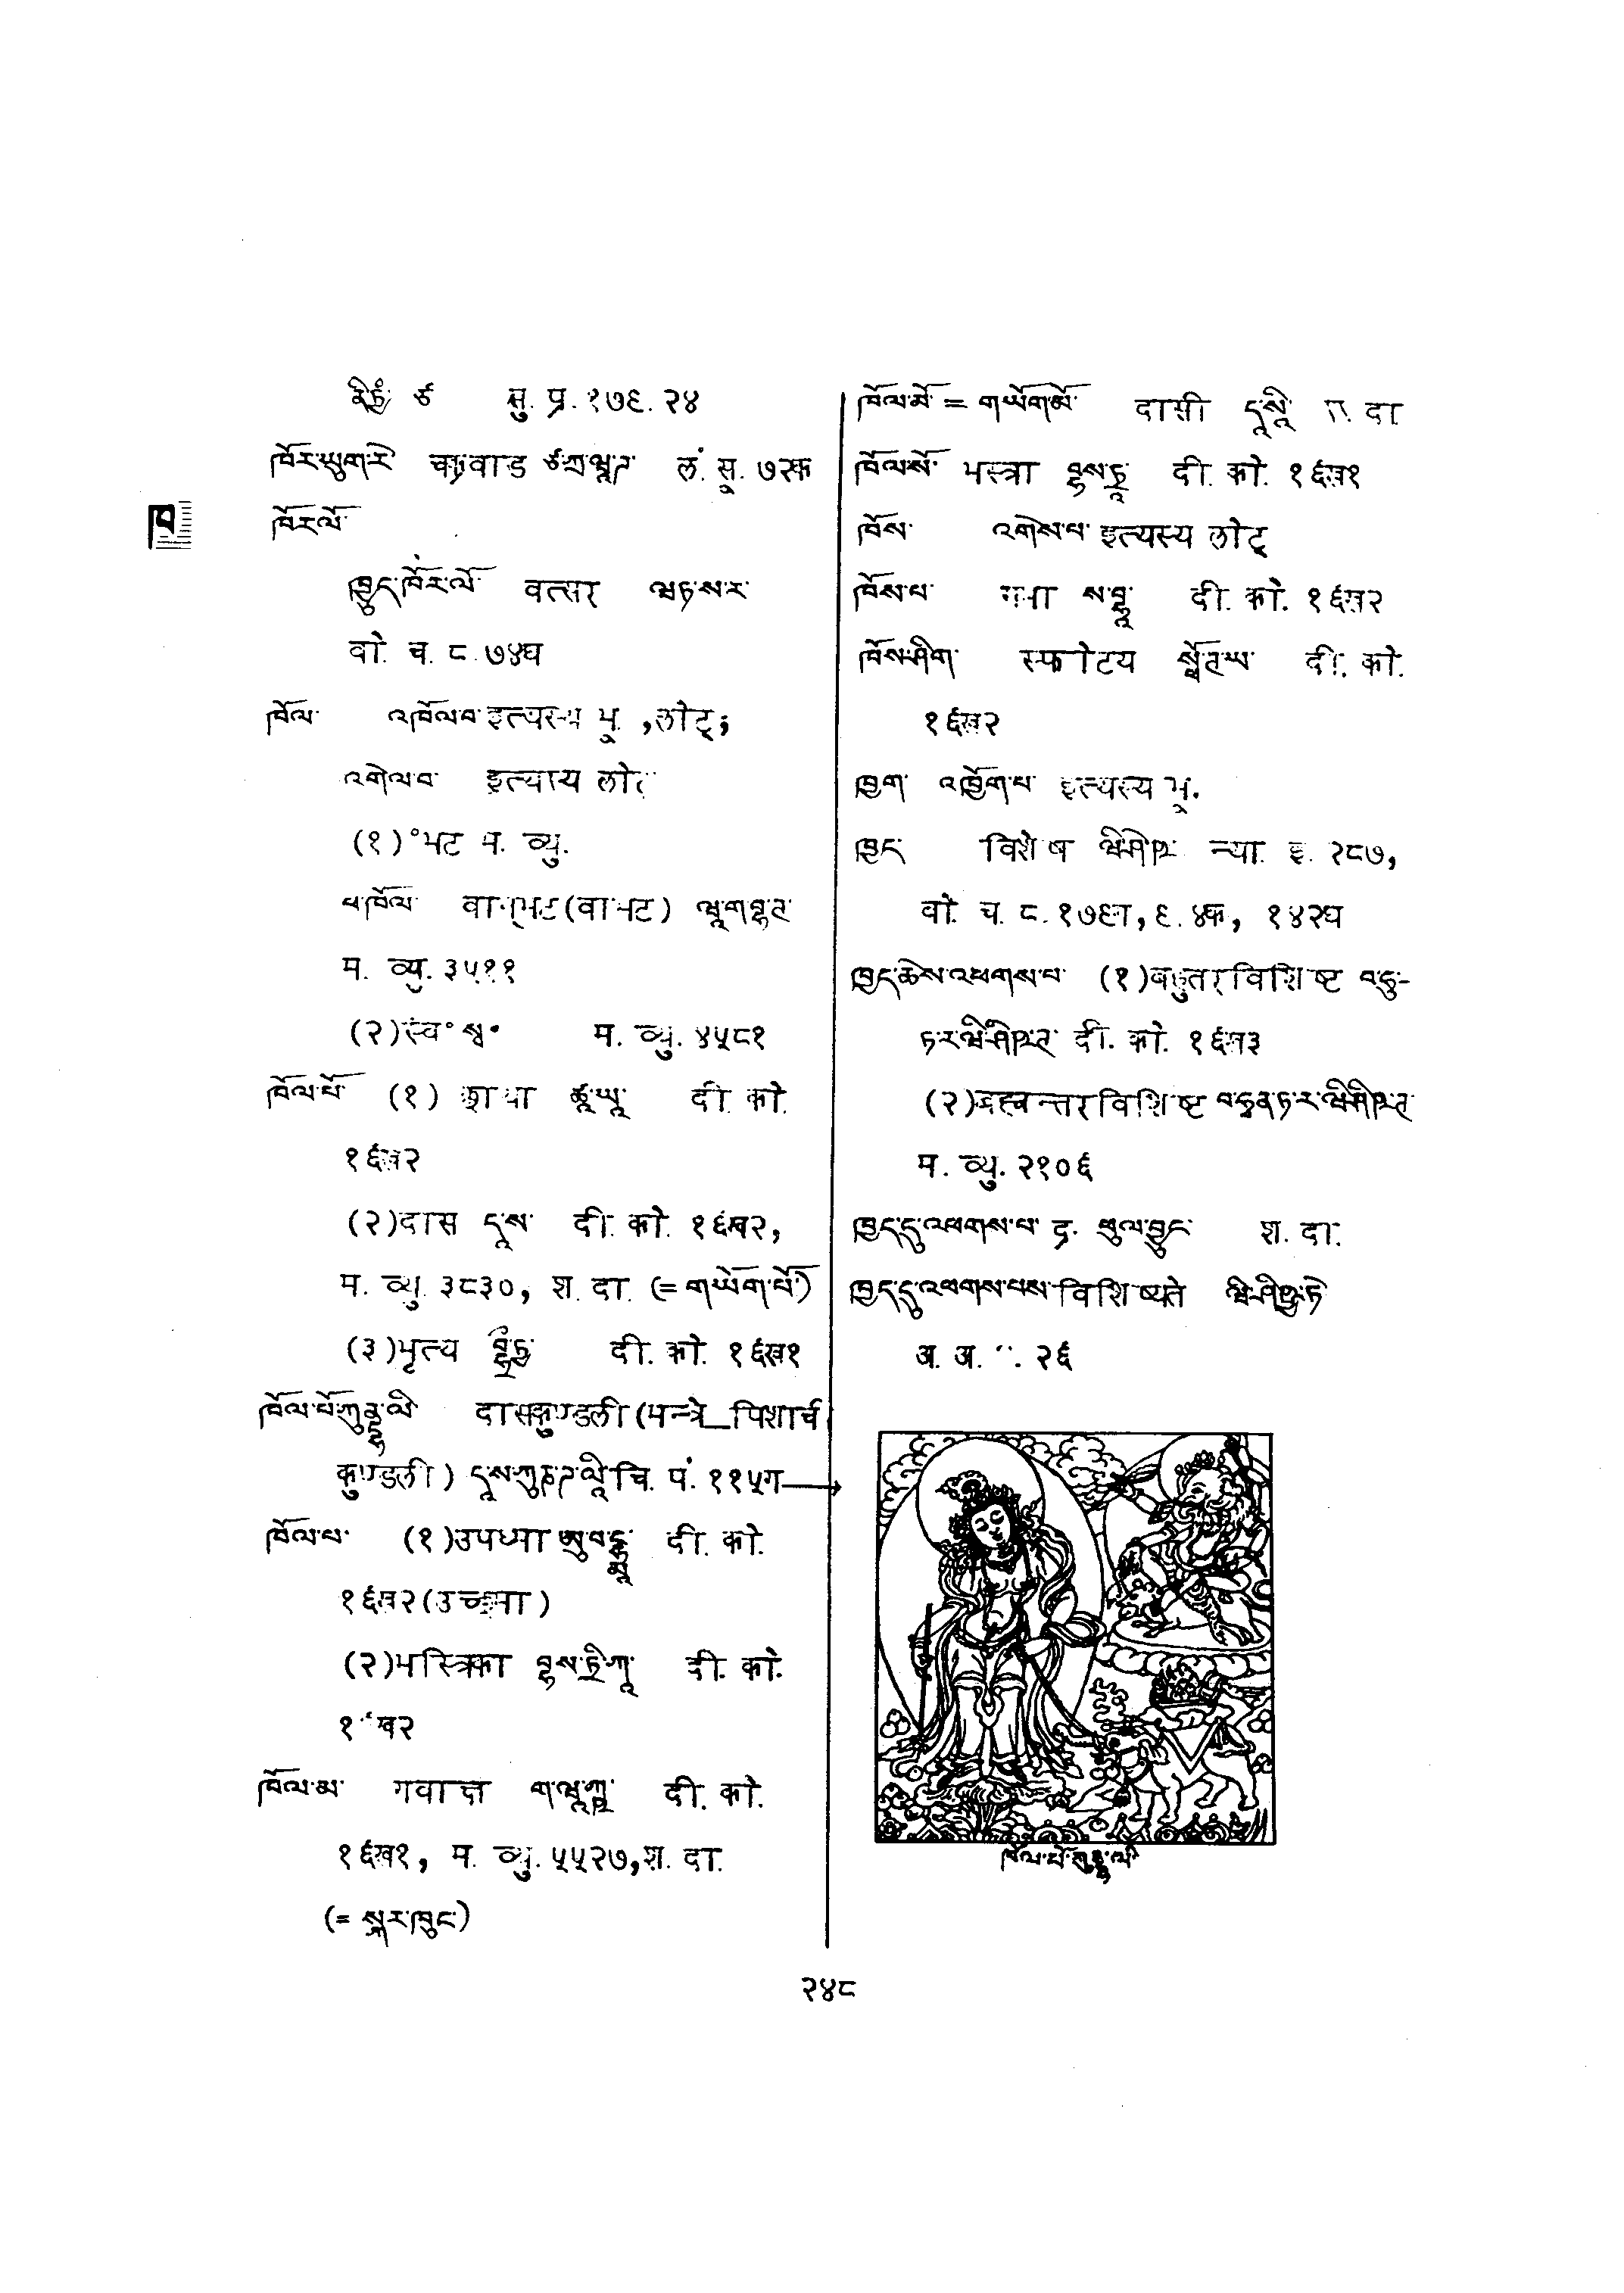 སུ. प्र. १७९. २४
ཁོར་ཡུག་རི चक्रवाड ཙ་ཀྲ་ཝཱ་ཌ लं. सू. ७२क
ཁ
ཁོར་ལོ
ཁྱུད་ཁོར་ལོ वत्सर ཝཏ་ས་ར
बो. च. ८.७४घ
ཁོལ་ འཁོལ་བ་ इत्यस्य भू. ,लोट्;
འགེལ་བ་ इत्यस्य लोट्
(१)°भट म. व्यु.
ཕ་ཁོལ
म. व्यु. ३५११
(२)स्व° སྭ° म. व्यु. ४५८१
ཁོལ་པོ (१) दी. को.
१६ख२
(२)दास དཱ་ས་ दी. को. १६ख२,
म. व्यु. ३८३०, श. दा. (=གཡོག་པོ)
(३)भृत्य བྷྲྀ་ཏྱ་ दी. को. १६ख१
ཁོལ་པོ་ཀུཎྜ་ལི दासकुण्डली(मन्त्रे_पिशाच
कुण्डली) དཱ་ས་ཀུཎ་ཌ་ལཱི चि. पं. ११५ग→
ཁོལ་བ་ (१) दी. को.
१६ख२
(२)भस्त्रिका བྷ་སཏྲི་ཀཱ दी. को.
ख२
ཁོལ་མ་ गवाक्ष ག་ཝཱཀྵ་ दी. को.
१६ख१, म. व्यु. ५५२७,श. दा.
(= སྐར་ཁུང་)
ཁོལ་མོ་ = གཡོག་མོ་ दासी དཱ་སཱི श. दा
ཁོལ་མོ་ भस्त्रा བྷ་སཏྲཱ दी. को. १६ख१
ཁོས་ འགེས་པ་ इत्यस्य लोट्
ཁོས་པ་ दी. को. १६ख२
ཁོས་ཤིག་ स्फोटय སྥོ་ཊ་ཡ་ दी. को.
१६ख२
ཁྱག་ འཁྱོག་པ་ इत्यस्य भू.
ཁྱད་ विशेष ཝི་ཤེ་ཥ་ न्या. २८७,
बो. च. ८.१७९ग, ९.४क, १४२घ
ཁྱད་ཆེས་འཕགས་པ་ (१)बहुतरविशिष्ट བ་ཧུ-
ཏ་ར་ཝི་ཤིཥྚ་ दी. को. १६ख३
(२)बह्वन्तरविशिष्ट བ་ཧྭན་ཏ་ར་ཝི་ཤིཥྚ་
म. व्यु. २१०६
ཁྱད་དུ་འཕགས་པ་ द्र. ཕུལ་བྱུང་ श. दा.
ཁྱད་དུ་འཕགས་པས་ विशिष्यते ཝི་ཤིཥྱ་ཏེ
अ. अ. २६
ཁོལ་པོ་ཀུཎྜ་ལི
२४८